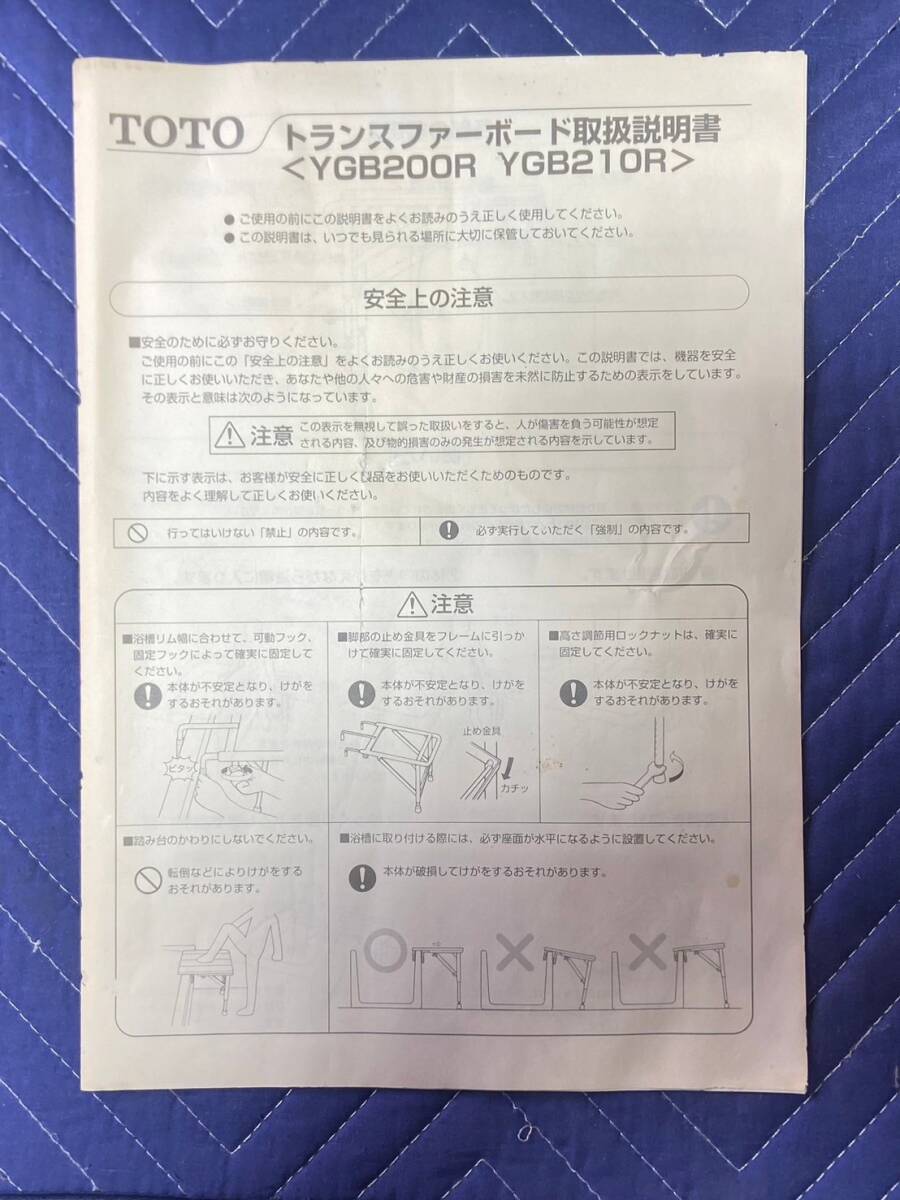 TOTO
トランスファーボード取扱説明書
＜YGB200R YGB210R＞
● ご使用の前にこの説明書をよくお読みのうえ正しく使用してください。
● この説明書は、いつでも見られる場所に大切に保管しておいてください。
安全上の注意
■安全のために必ずお守りください。
ご使用の前にこの「安全上の注意」をよくお読みのうえ正しくお使いください。この説明書では、機器を安全
に正しくお使いいただき、あなたや他の人々への危害や財産の損害を未然に防止するための表示をしています。
その表示と意味は次のようになっています。
注意
この表示を無視して誤った取扱いをすると、人が傷害を負う可能性が想定
される内容、及び物的損害のみの発生が想定される内容を示しています。
下に示す表示は、お客様が安全に正しく製品をお使いいただくためのものです。
内容をよく理解して正しくお使いください。
行ってはいけない「禁止」の内容です。
必ず実行していただく「強制」の内容です。
注意
■浴槽リム幅に合わせて、可動フック、
固定フックによって確実に固定して
ください。
本体が不安定となり、けがを
するおそれがあります。
ピタッ
■脚部の止め金具をフレームに引っか
けて確実に固定してください。
本体が不安定となり、けがを
するおそれがあります。
止め金具
カチッ
■高さ調節用ロックナットは、確実に
固定してください。
本体が不安定となり、けがを
するおそれがあります。
■踏み台のかわりにしないでください。
転倒などによりけがをする
おそれがあります。
■浴槽に取り付ける際には、必ず座面が水平になるように設置してください。
本体が破損してけがをするおそれがあります。